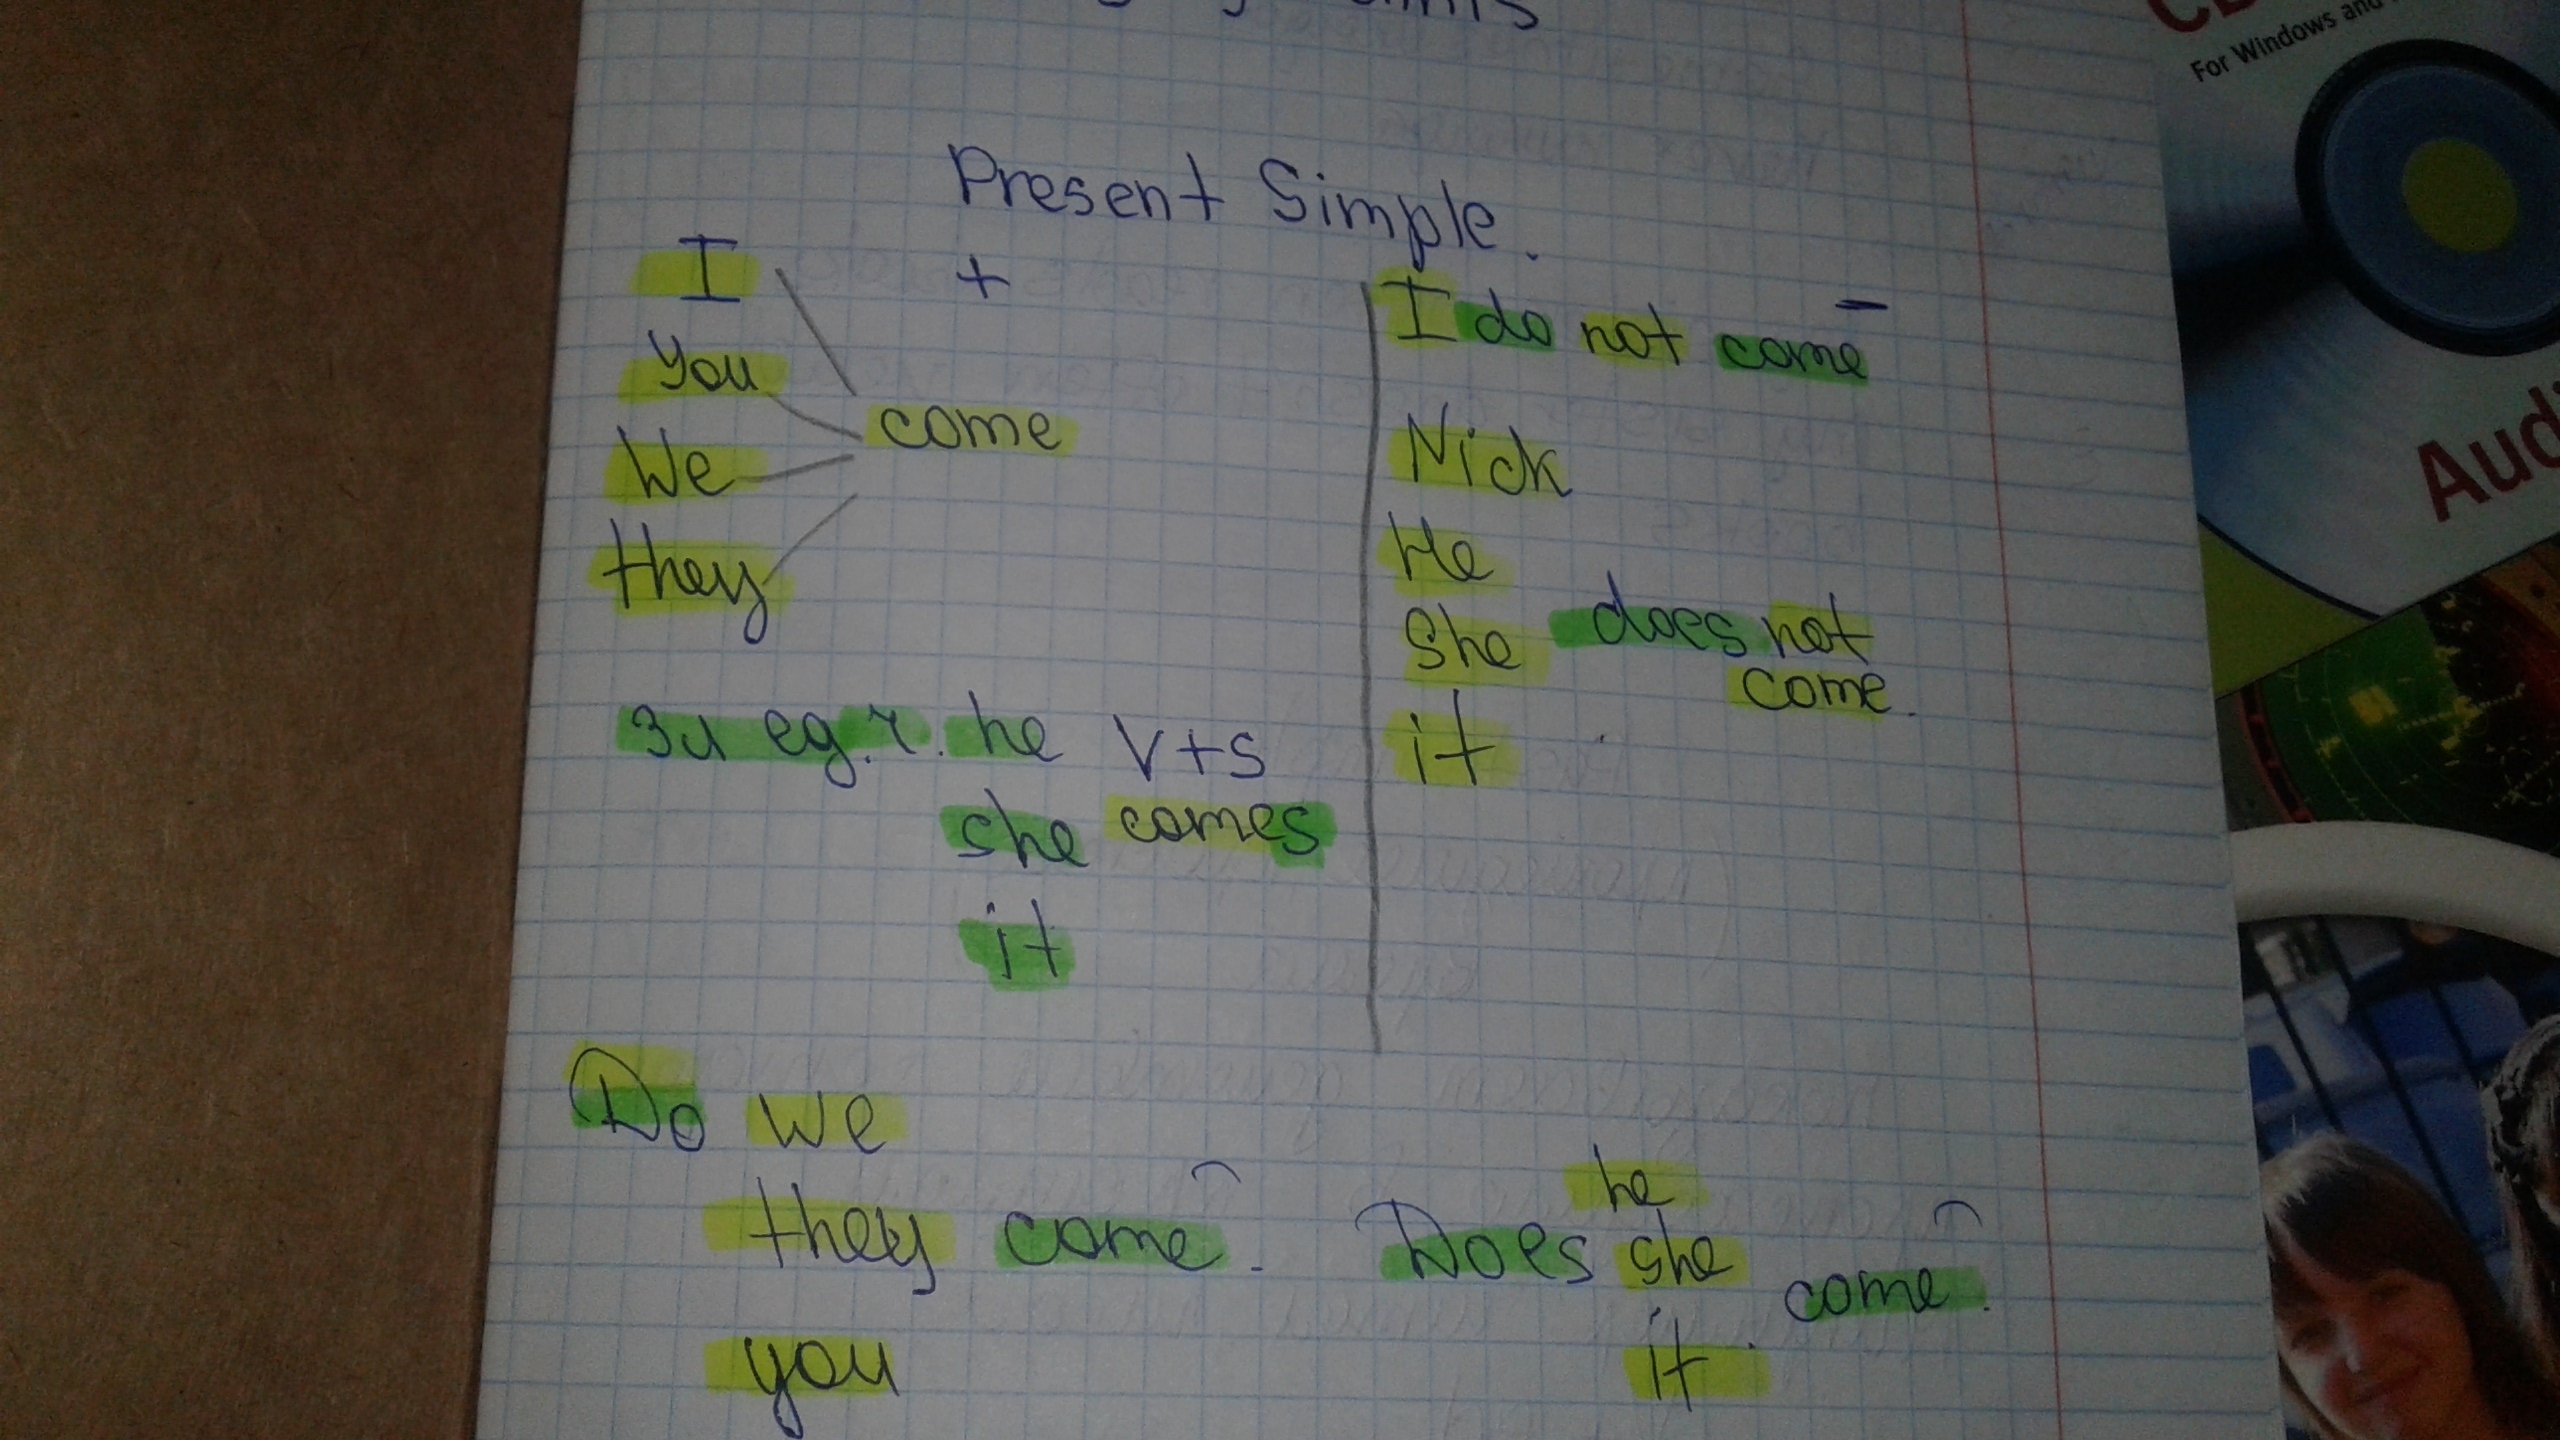 Present Simple.
+
I
you
We
they
come
3л ед.ч. he V+s
she comes
it
-
I do not come
Nick
He
She does not
come.
it
Do we
they come?
you
he
Does she
come?
it
For Windows and
Aud